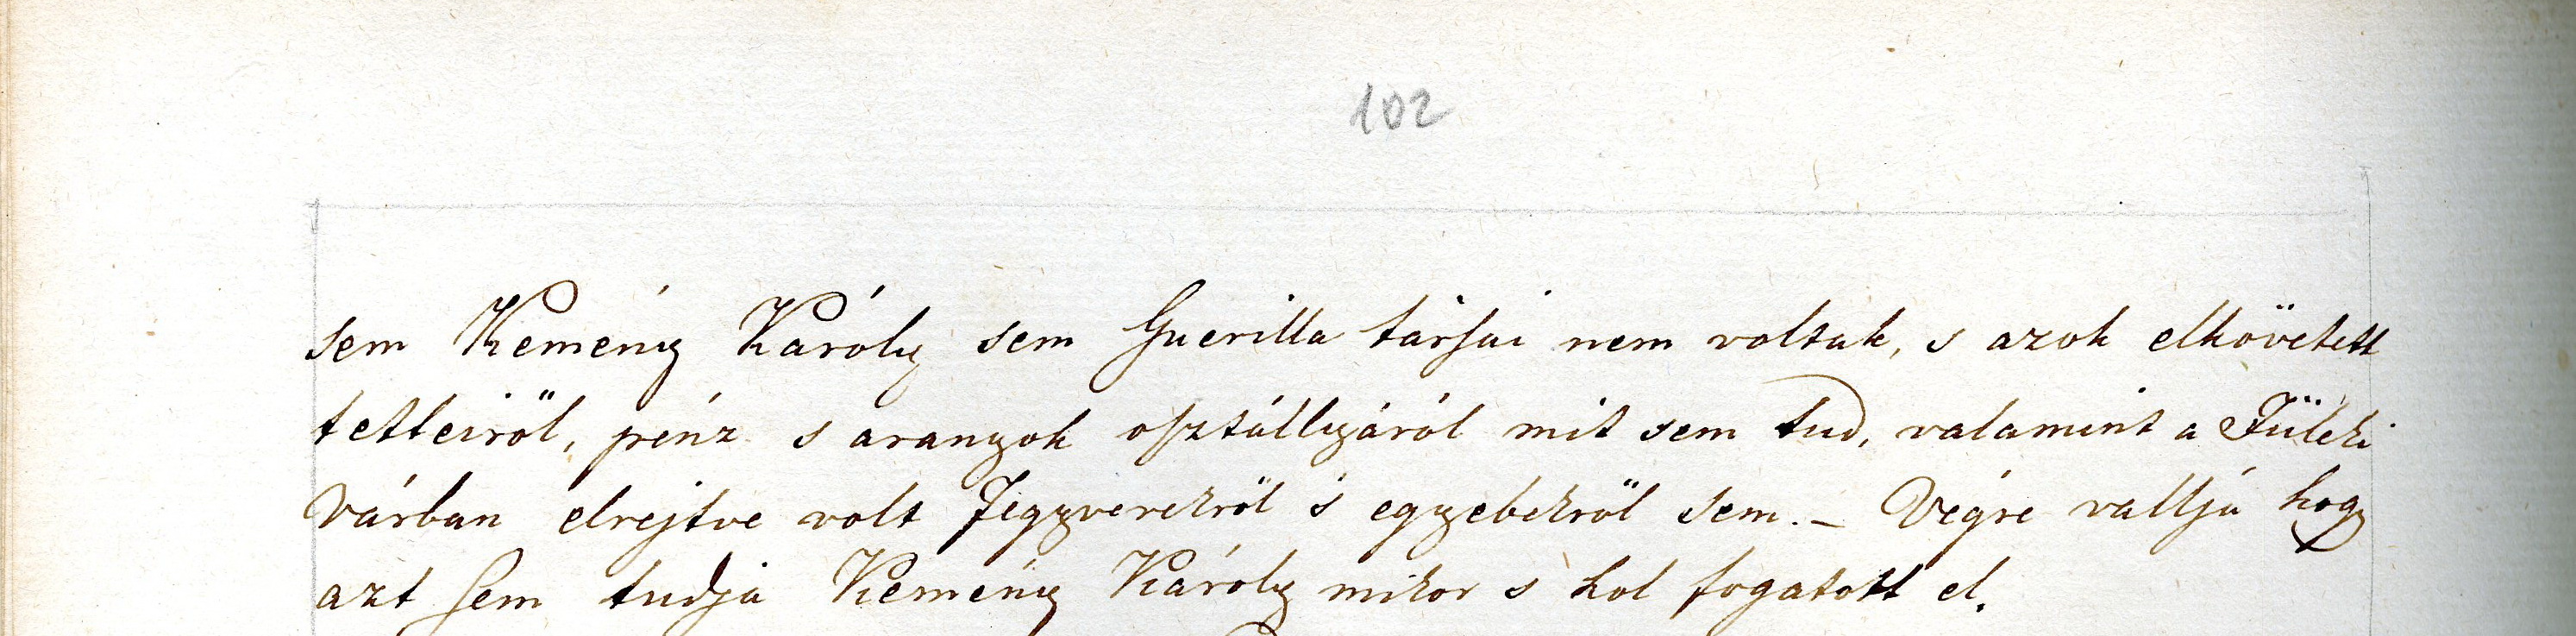 102
sem Kemény Károly sem Guerilla társai nem voltak, s azok elkövetett
tetteiröl, pénz s aranyok osztállyáról mit sem tud, valamint a Füleki
Várban elrejtve volt Fegyverekröl s egyebekröl sem. – Végre vallja hogy
azt sem tudja Kemény Károly mikor s hol fogatott el.